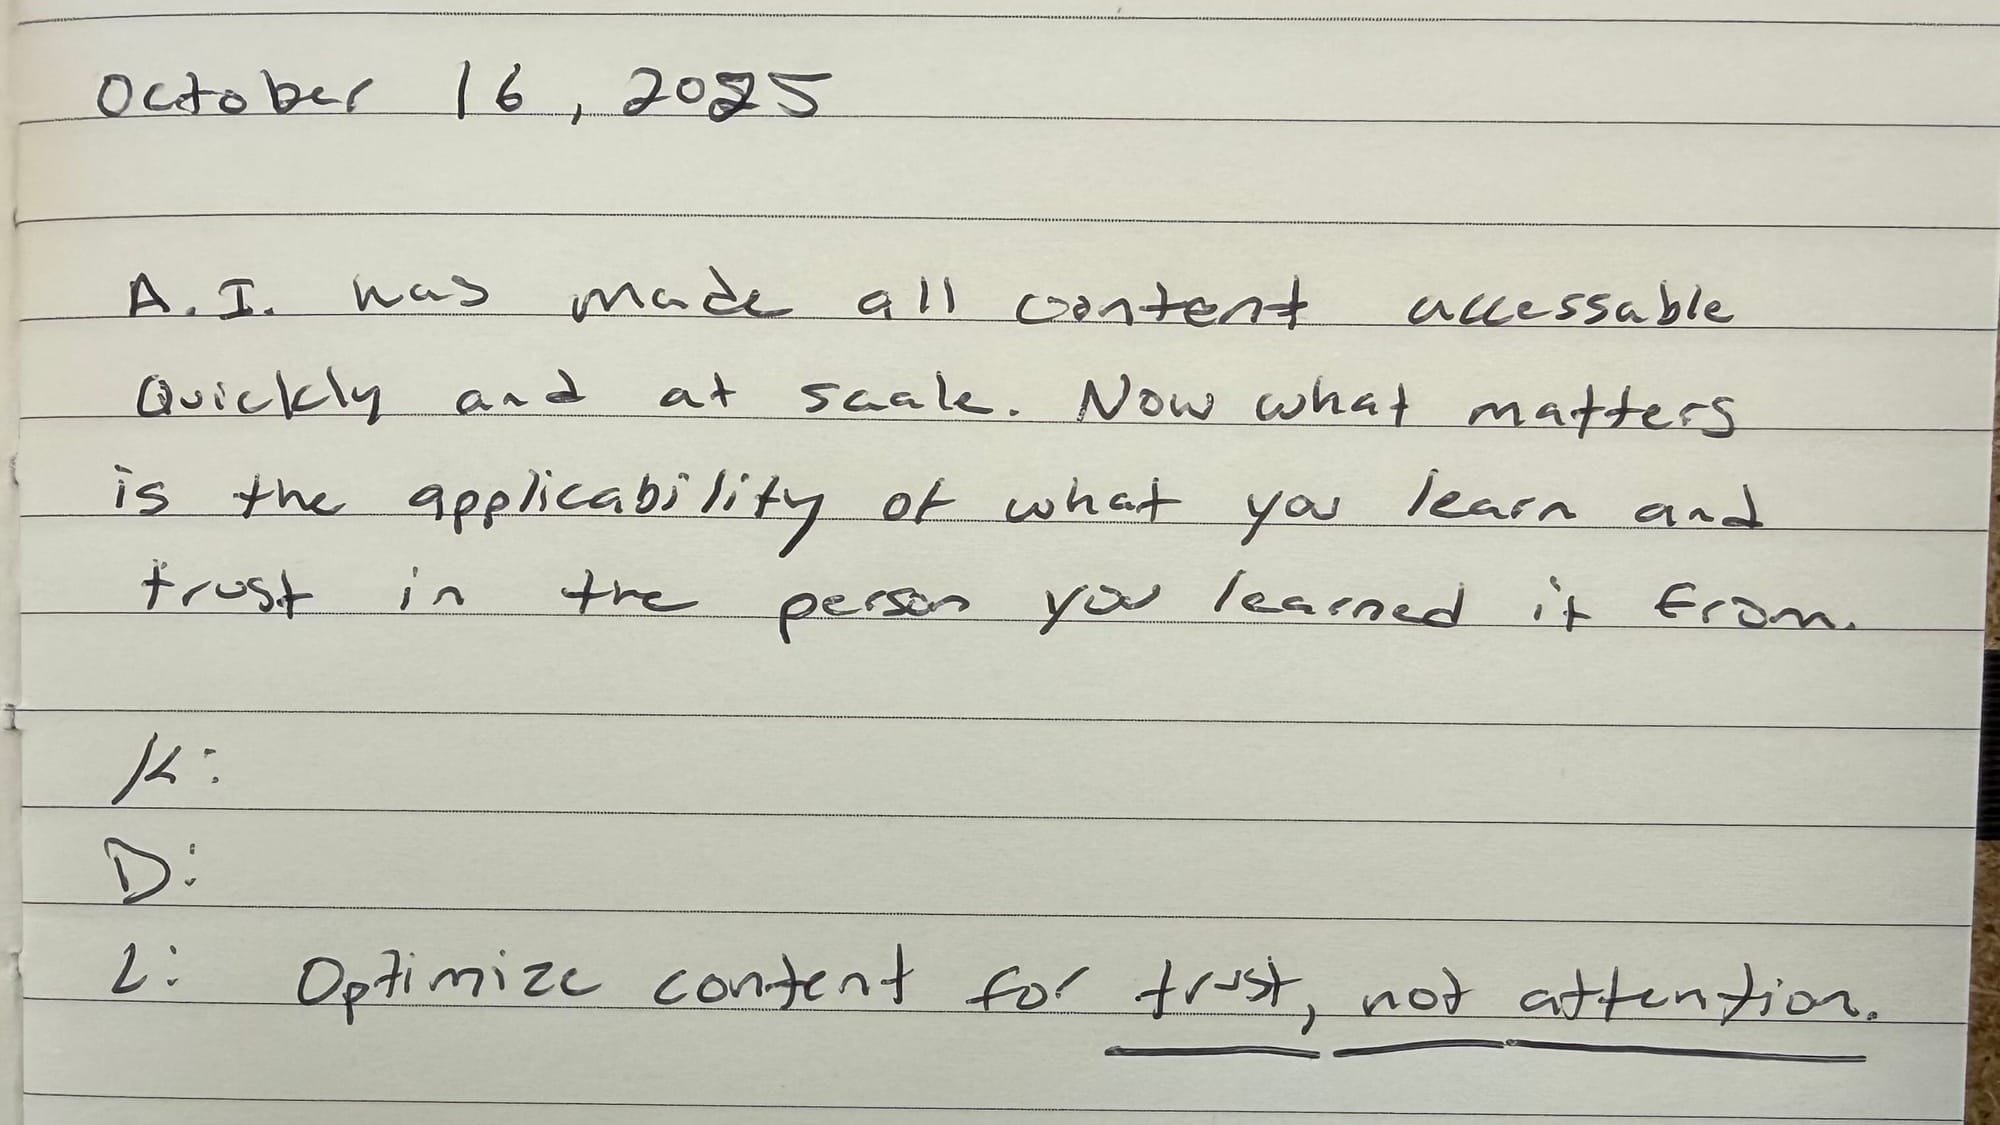 October 16, 2025
A.I. has made all content accessable
Quickly and at scale. Now what matters
is the applicability of what you learn and
trust in the person you learned it from.
K:
D:
L: Optimize content for trust, not attention.